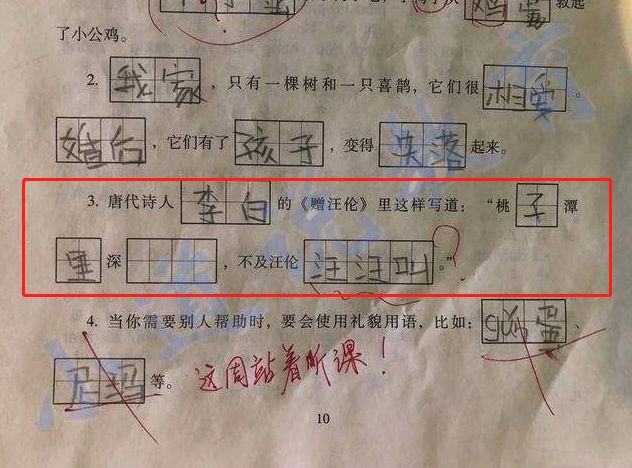 鸡蛋 救起
了小公鸡。
2. 我家,只有一棵树和一只喜鹊,它们很相爱。
婚后,它们有了孩子,变得失落起来。
3. 唐代诗人李白的《赠汪伦》里这样写道:“桃子潭
里深,不及汪伦汪汪叫。” ?
4. 当你需要别人帮助时,要会使用礼貌用语,比如:gun蛋、
尼玛等。这周站着听课!
10